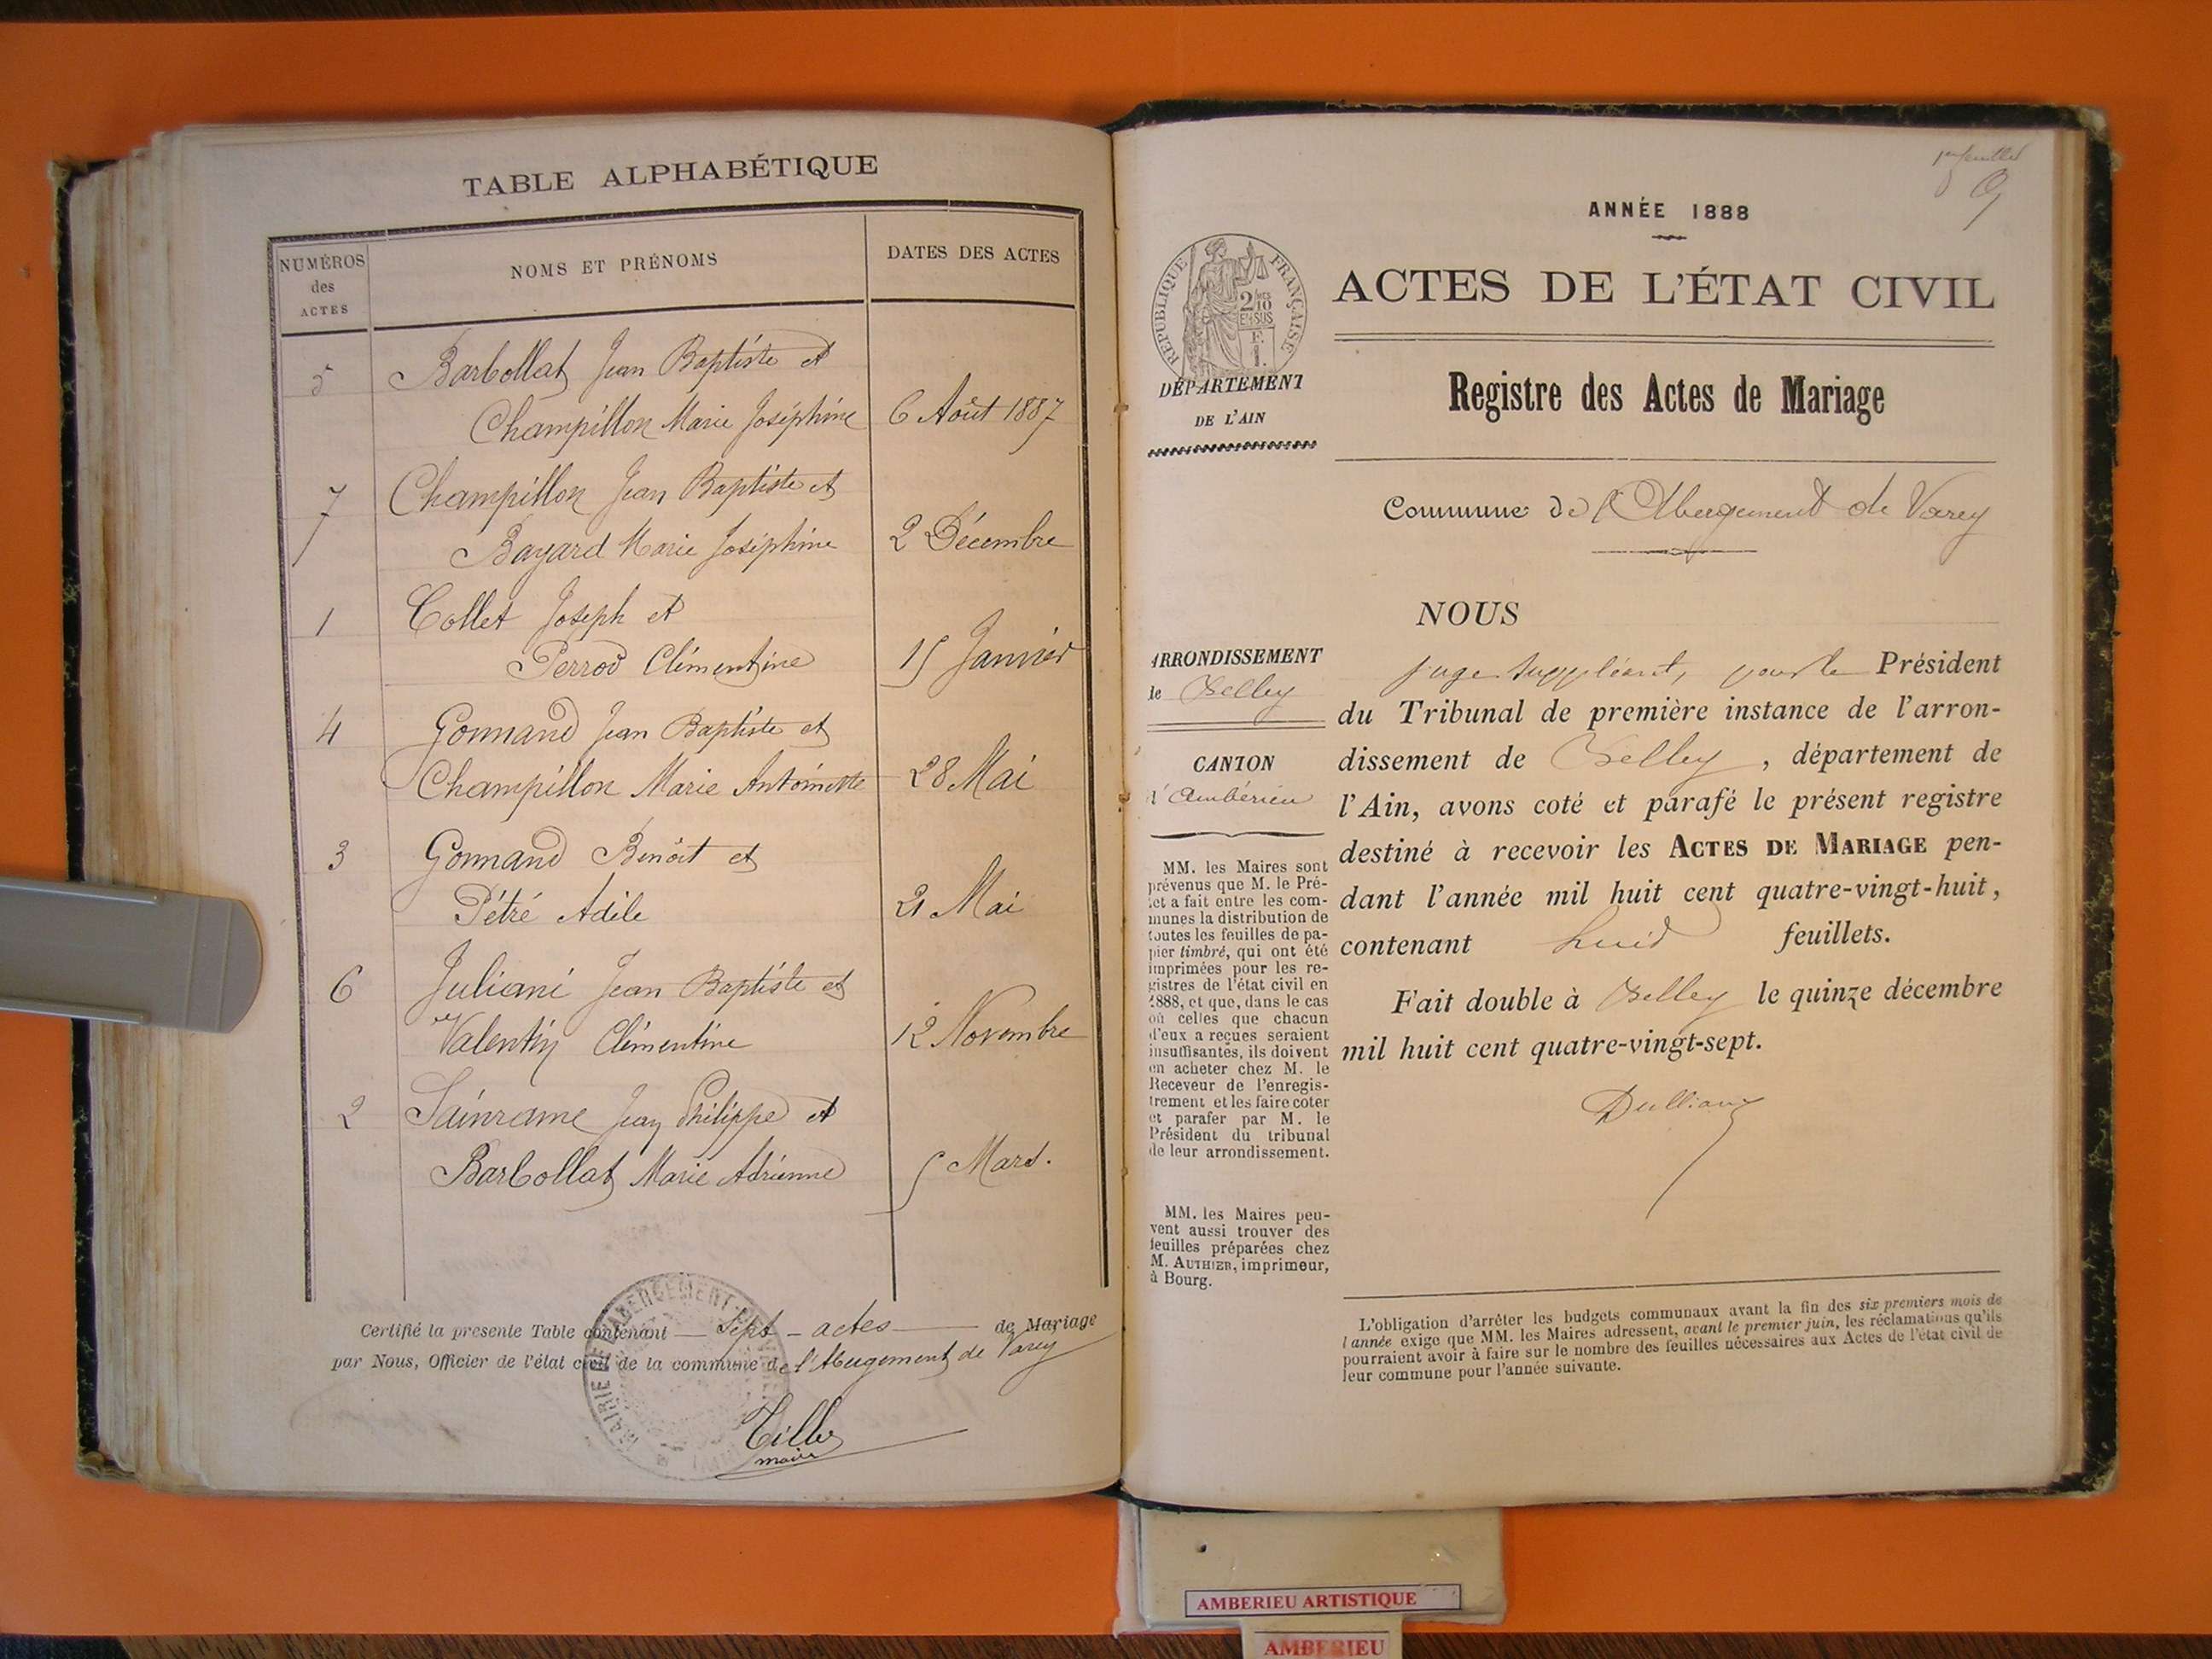 TABLE ALPHABÉTIQUE
NUMÉROS
des
ACTES
NOMS ET PRÉNOMS
DATES DES ACTES
5 Barbollat Jean Baptiste et
Champillon Marie Joséphine 6 Août 1887
7 Champillon Jean Baptiste et
Bayard Marie Joséphine 2 Décembre
1 Collet Joseph et
Perrod Clémentine 15 Janvier
4 Gonnand Jean Baptiste et
Champillon Marie Antoinette 28 Mai
3 Gonnand Benoit et
Pétré Adèle 21 Mai
6 Juliani Jean Baptiste et
Valentin Clémentine 12 Novembre
2 Sainrame Jean Philippe et
Barbollat Marie Adrienne 5 Mars.
Certifié la presente Table contenant sept actes de Mariage
par Nous, Officier de l'état civil de la commune de l'Abergement de Varey
maire
1er feuillet
ANNÉE 1888
RÉPUBLIQUE FRANÇAISE
2 10
EN SUS
F.
1.
DÉPARTEMENT
DE L'AIN
ACTES DE L'ÉTAT CIVIL
Registre des Actes de Mariage
Commune de l'Abergement de Varey
ARRONDISSEMENT
de Belley
CANTON
d'Ambérieu
MM. les Maires sont
prévenus que M. le Pré-
fet a fait entre les com-
munes la distribution de
toutes les feuilles de pa-
pier timbré, qui ont été
imprimées pour les re-
gistres de l'état civil en
1888, et que, dans le cas
où celles que chacun
d'eux a reçues seraient
insuffisantes, ils doivent
en acheter chez M. le
Receveur de l'enregis-
trement et les faire coter
et parafer par M. le
Président du tribunal
de leur arrondissement.
MM. les Maires peu-
vent aussi trouver des
feuilles préparées chez
M. AUTHIER, imprimeur,
à Bourg.
NOUS
juge suppléant, pour le Président
du Tribunal de première instance de l'arron-
dissement de Belley, département de
l'Ain, avons coté et parafé le présent registre
destiné à recevoir les ACTES DE MARIAGE pen-
dant l'année mil huit cent quatre-vingt-huit,
contenant huit feuillets.
Fait double à Belley le quinze décembre
mil huit cent quatre-vingt-sept.
L'obligation d'arrêter les budgets communaux avant la fin des six premiers mois de
l'année exige que MM. les Maires adressent, avant le premier juin, les réclamations qu'ils
pourraient avoir à faire sur le nombre des feuilles nécessaires aux Actes de l'état civil de
leur commune pour l'année suivante.
AMBERIEU ARTISTIQUE
AMBERIEU